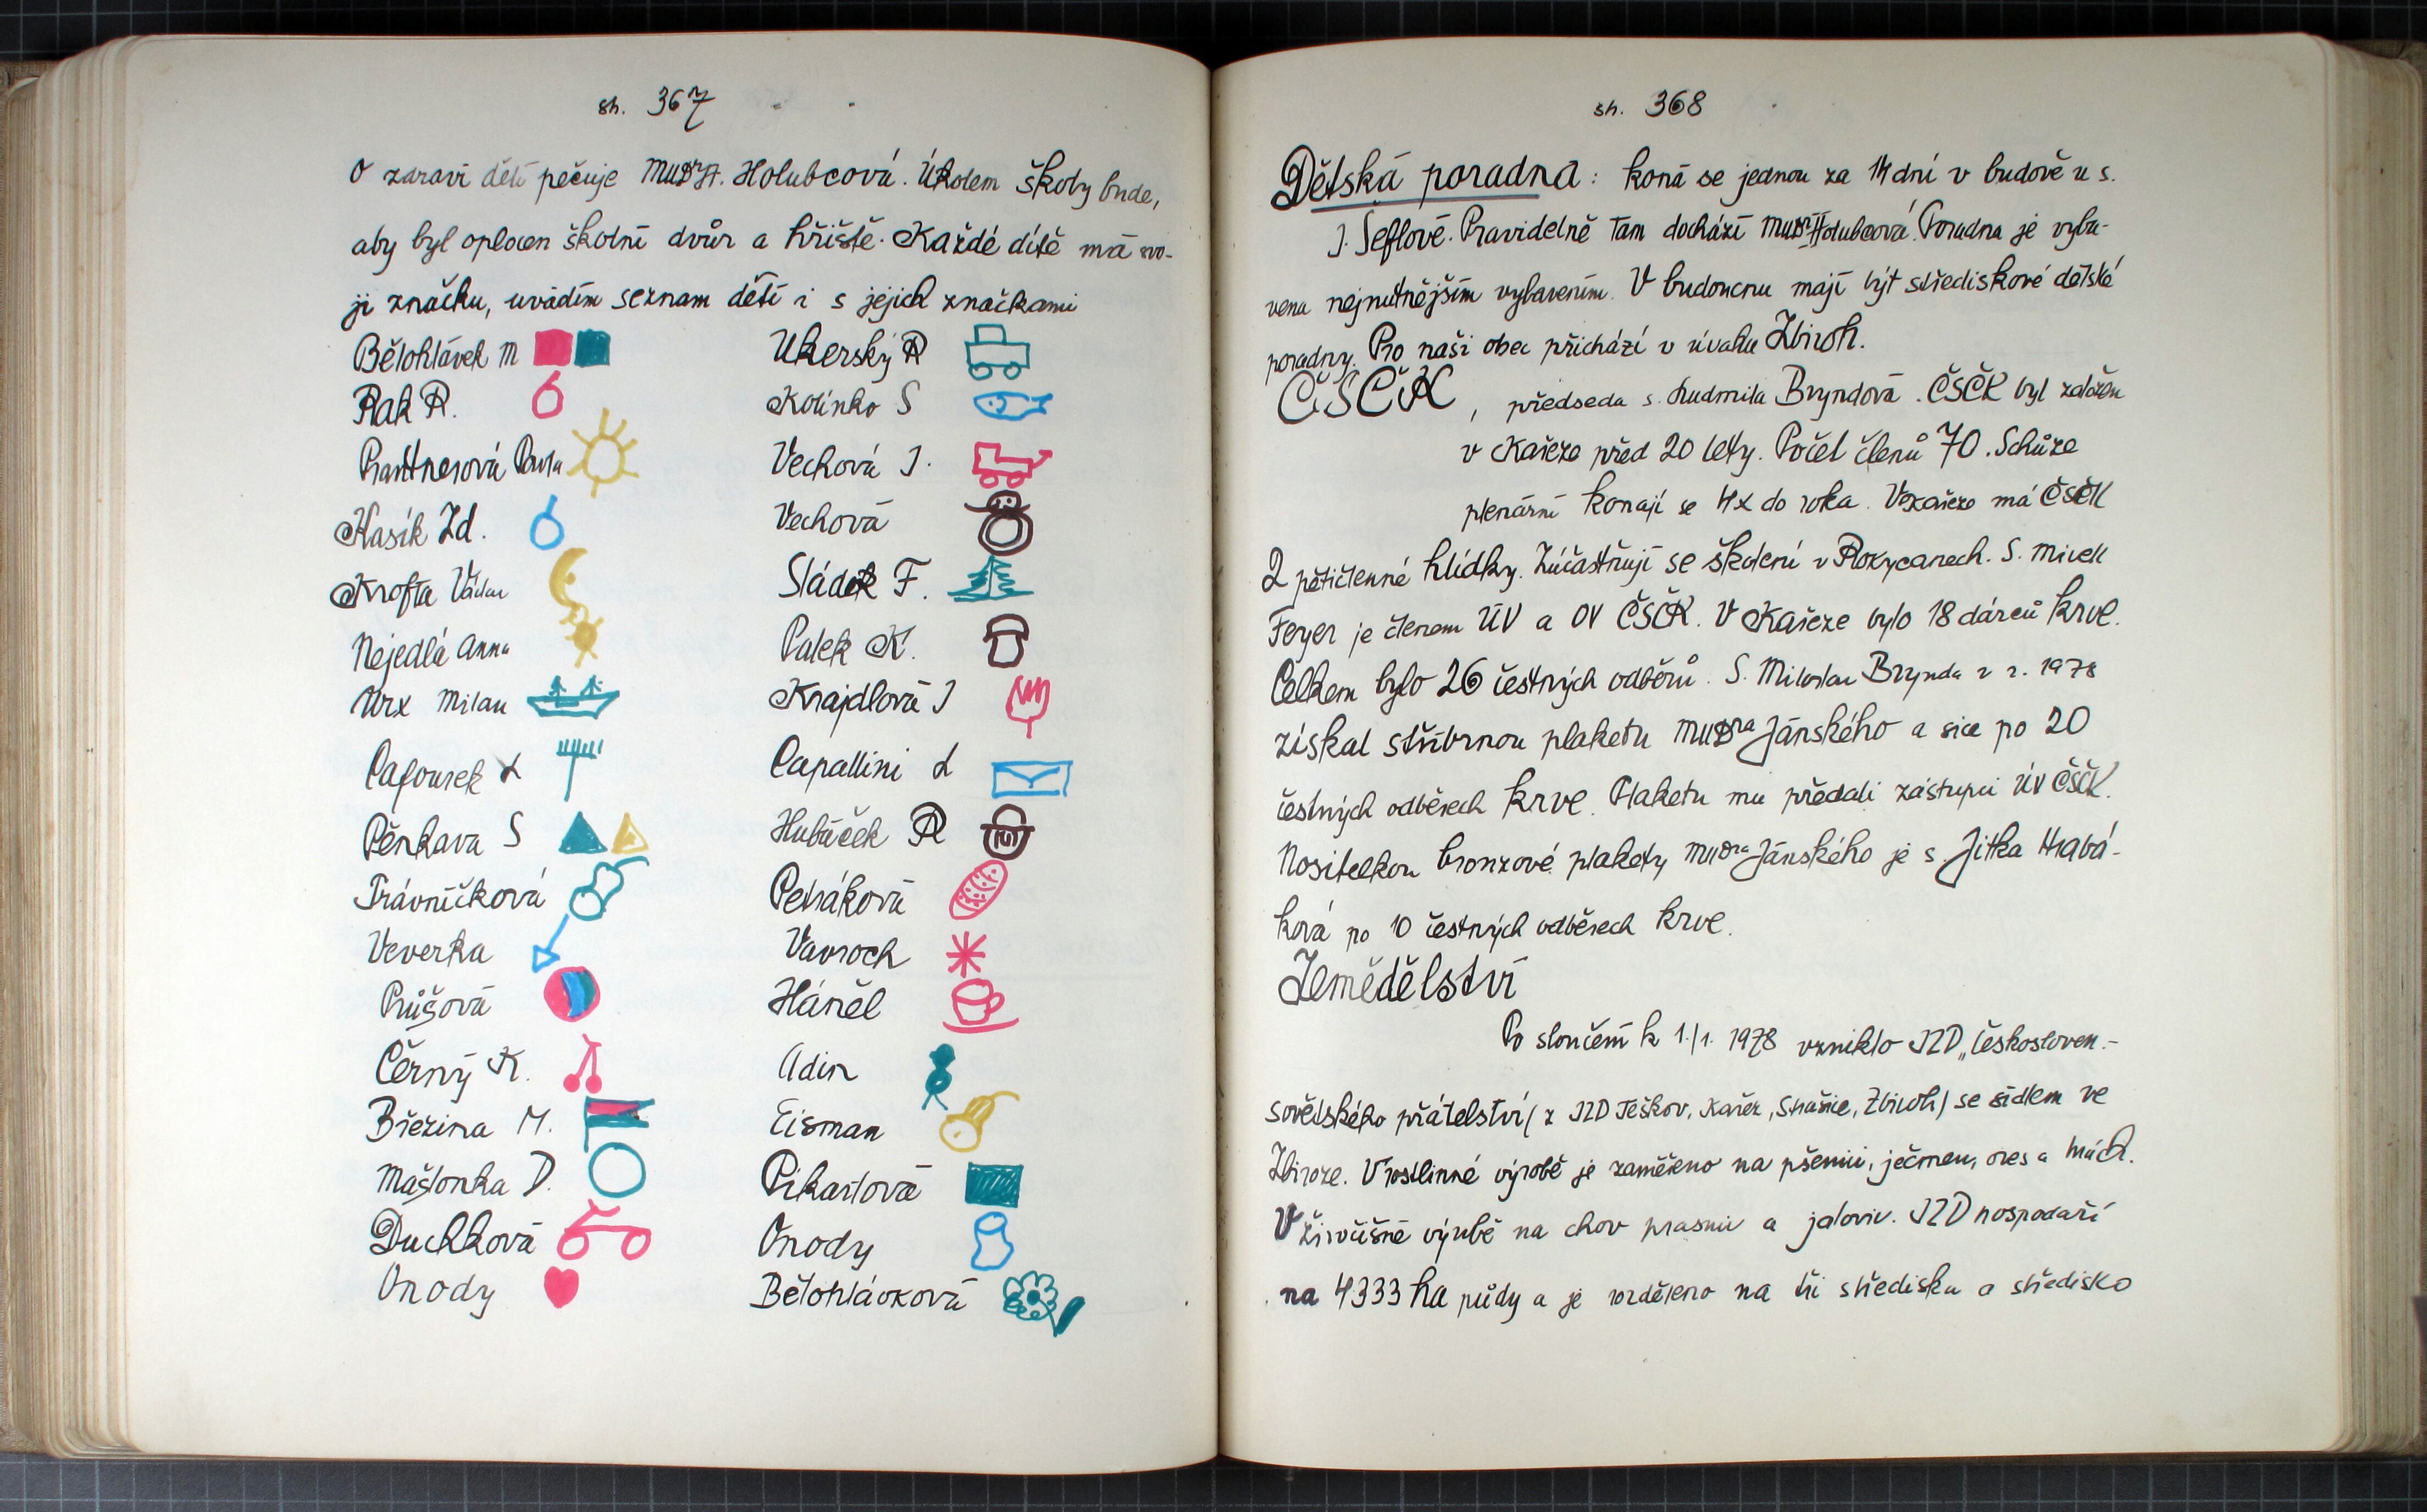 str. 367
O zdraví dětí pečuje MUDr A. Holubcová. Úkolem školy bude,
aby byl oplocen školní dvůr a hřiště. Každé dítě má svo-
ji značku, uvádím seznam dětí i s jejich značkami
Bělohlávek M
Rak R.
Prantnerová Pavla
Hasík Zd.
Krofta Václav
Nejedlá Anna
Urx Milan
Cafourek L
Pěnkava S
Trávníčková
Veverka
Průšová
Černý K.
Březina M.
Maštonka D.
Duchková
Onody
Ukerský R
Kolinko S
Vechová J.
Vechová
Sládek F.
Palek K.
Krajdlová J
Capallini L
Hubáček R
Petráková
Vavroch
Háněl
Adin
Eisman
Pikartová
Onody
Bělohlávková
str. 368
Dětská poradna: koná se jednou za 14 dní v budově u s.
J. Šeflové. Pravidelně tam dochází MUDr Holubcová. Poradna je vyba-
vena nejnutnějším vybavením. V budoucnu mají být střediskové dětské
poradny. Pro naši obec přichází v úvahu Zbiroh.
ČSČK, předseda s. Ludmila Bryndová. ČSČK byl založen
v Kařeze před 20 lety. Počet členů 70. Schůze
plenární konají se 4x do roka. V Kařeze má ČSČK
2 pětičlenné hlídky. Zúčastňují se školení v Rokycanech. S. Mirek
Feyer je členem ÚV a OV ČSČK. V Kařeze bylo 18 dárců krve.
Celkem bylo 26 čestných odběrů. S. Miloslav Brynda v r. 1978
získal stříbrnou plaketu MUDra Jánského a sice po 20
čestných odběrech krve. Plaketu mu předali zástupci ÚV ČSČK.
Nositelkou bronzové plakety MUDra Jánského je s. Jitka Hrabá-
ková po 10 čestných odběrech krve.
Zemědělství
Po sloučení k 1./1. 1978 vzniklo JZD „Českosloven.-
sovětského přátelství/ z JZD Těškov, Kařez, Strašice, Zbiroh/ se sídlem ve
Zbiroze. V rostlinné výrobě je zaměřeno na pšenici, ječmen, oves a hrách.
V živočišné výrobě na chov prasnic a jalovic. JZD hospodaří
na 4333 ha půdy a je rozděleno na tři střediska a středisko